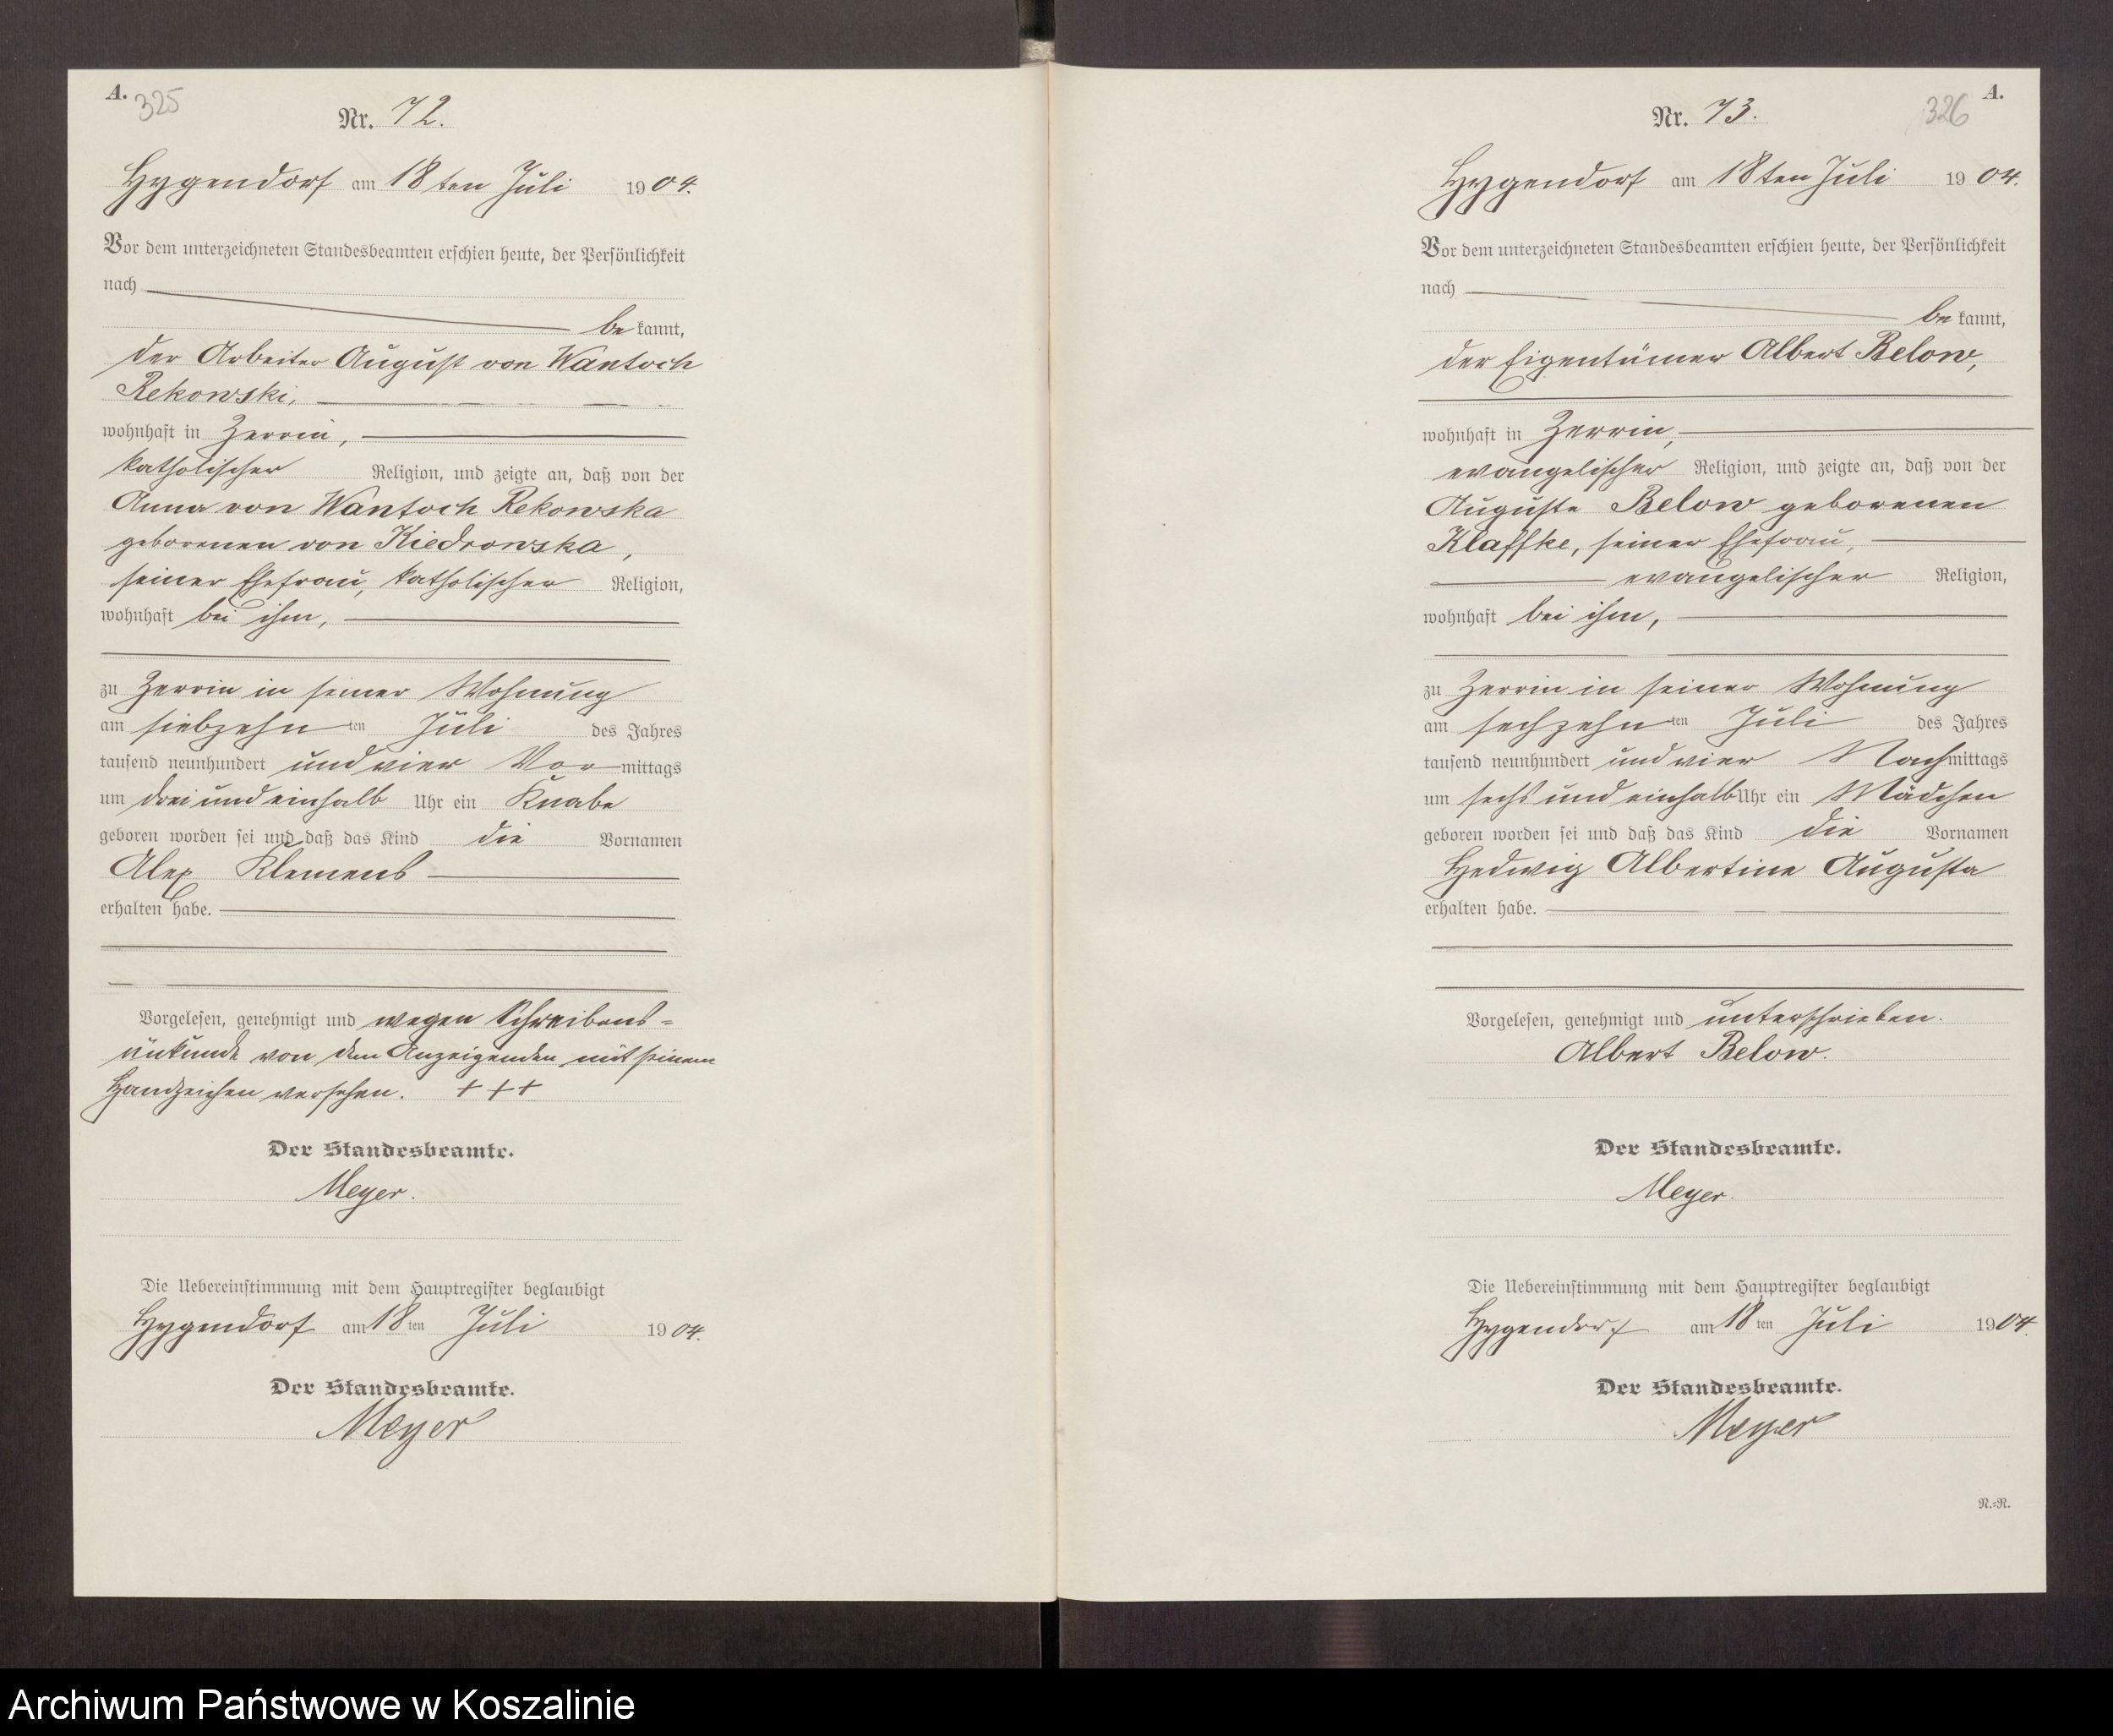 A.
325
Nr. 72.
Hygendorf am 18ten Juli 1904.
Vor dem unterzeichneten Standesbeamten erschien heute, der Persönlichkeit
nach
bekannt,
der Arbeiter August von Wantoch
Rekowski,
wohnhaft in Zerrin,
katholischer Religion, und zeigte an, daß von der
Anna von Wantoch Rekowska
geborenen von Kiedrowska,
seiner Ehefrau, katholischer Religion,
wohnhaft bei ihm,
zu Zerrin in seiner Wohnung
am siebzehnten Juli des Jahres
tausend neunhundert und vier Vormittags
um drei und einhalb Uhr ein Knabe
geboren worden sei und daß das Kind die Vornamen
Alex Klemens
erhalten habe.
Vorgelesen, genehmigt und wegen Schreibens-
unkunde von dem Anzeigenden mit seinem
Handzeichen versehen. + + +
Der Standesbeamte.
Meyer.
Die Uebereinstimmung mit dem Hauptregister beglaubigt
Hygendorf am 18ten Juli 1904.
Der Standesbeamte.
Meyer
A.
326
Nr. 73.
Hygendorf am 18ten Juli 1904.
Vor dem unterzeichneten Standesbeamten erschien heute, der Persönlichkeit
nach
bekannt,
der Eigentümer Albert Below,
wohnhaft in Zerrin,
evangelischer Religion, und zeigte an, daß von der
Auguste Below geborenen
Klaffke, seiner Ehefrau,
evangelischer Religion,
wohnhaft bei ihm,
zu Zerrin in seiner Wohnung
am sechzehnten Juli des Jahres
tausend neunhundert und vier Nachmittags
um sechs und einhalb Uhr ein Mädchen
geboren worden sei und daß das Kind die Vornamen
Hedwig Albertine Augusta
erhalten habe.
Vorgelesen, genehmigt und unterschrieben.
Albert Below.
Der Standesbeamte.
Meyer.
Die Uebereinstimmung mit dem Hauptregister beglaubigt
Hygendorf am 18ten Juli 1904.
Der Standesbeamte.
Meyer
N.=R.
Archiwum Państwowe w Koszalinie